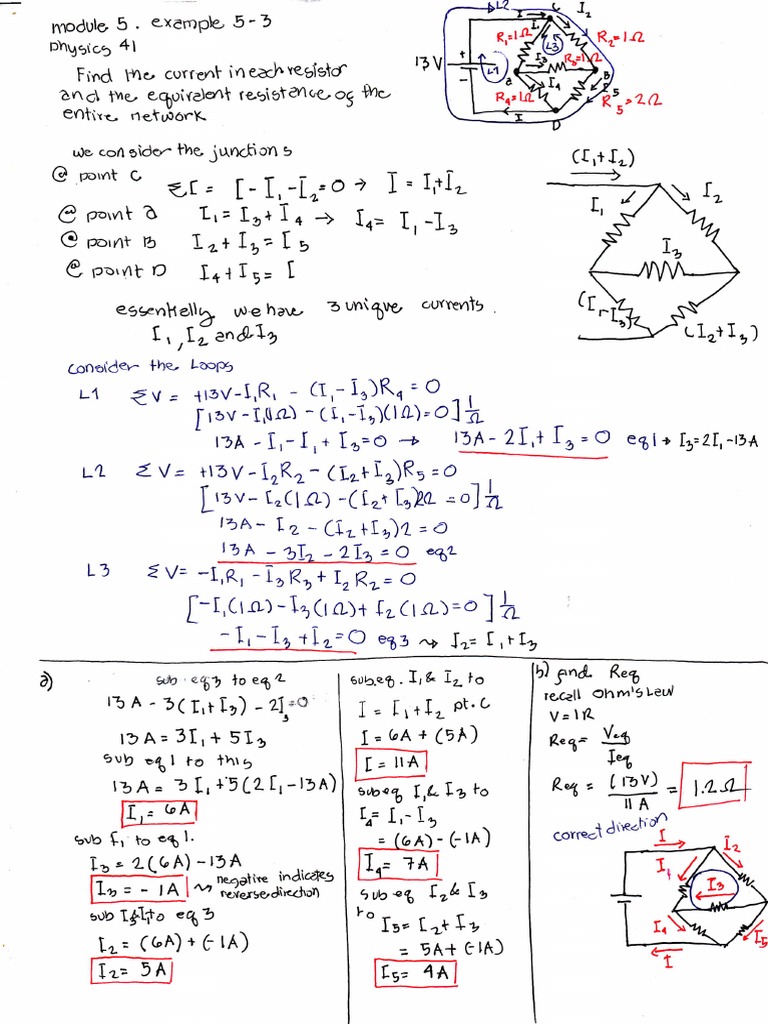 module 5. example 5-3
Physics 41
Find the current in each resistor
and the equivalent resistance of the
entire network
13V
+
-
L2
C
I
I₂
I₁
R₁=1Ω
R₂=1Ω
L3
L1
I₃
R₃=1Ω
a
B
R₄=1Ω
I₄
I₅
R₅=2Ω
D
I
we consider the junctions
@ point C ΣI = I-I₁-I₂=0 → I = I₁+I₂
@ point a I₁=I₃+I₄ → I₄= I₁-I₃
@ point B I₂+I₃=I₅
@ point D I₄+I₅= I
(I₁+I₂)
I₁
I₂
I₃
(I₁-I₃)
(I₂+I₃)
essentially we have 3 unique currents.
I₁, I₂ and I₃
consider the Loops
L1 ΣV= +13V-I₁R₁ - (I₁-I₃)R₄=0
[13V-I₁(1Ω) - (I₁-I₃)(1Ω)=0] 1/Ω
13A-I₁-I₁+I₃=0 → 13A-2I₁+I₃=0 eq1 → I₃=2I₁-13A
L2 ΣV= +13V-I₂R₂-(I₂+I₃)R₅=0
[13V-I₂(1Ω)-(I₂+I₃)2Ω=0] 1/Ω
13A-I₂-(I₂+I₃)2=0
13A-3I₂-2I₃=0 eq2
L3 ΣV= -I₁R₁-I₃R₃+I₂R₂=0
[-I₁(1Ω)-I₃(1Ω)+I₂(1Ω)=0] 1/Ω
-I₁-I₃+I₂=0 eq3 → I₂= I₁+I₃
a) sub eq3 to eq2
13A-3(I₁+I₃)-2I₃=0
13A=3I₁+5I₃
sub eq1 to this
13A=3I₁+5(2I₁-13A)
I₁=6A
sub I₁ to eq1.
I₃=2(6A)-13A
I₃=-1A → negative indicates
reverse direction
sub I₃&I₁ to eq3
I₂=(6A)+(-1A)
I₂=5A
sub eq. I₁ & I₂ to
I=I₁+I₂ pt.C
I=6A+(5A)
I=11A
sub eq I₁ & I₃ to
I₄=I₁-I₃
=(6A)-(-1A)
I₄=7A
sub eq I₂ & I₃
to
I₅=I₂+I₃
=5A+(-1A)
I₅=4A
b) find Req
recall Ohm's Law
V=IR
Req= Veq/Ieq
Req= (13V)/11A = 1.2Ω
correct direction
I
I₂
I₁
I₃
I₄
I₅
I